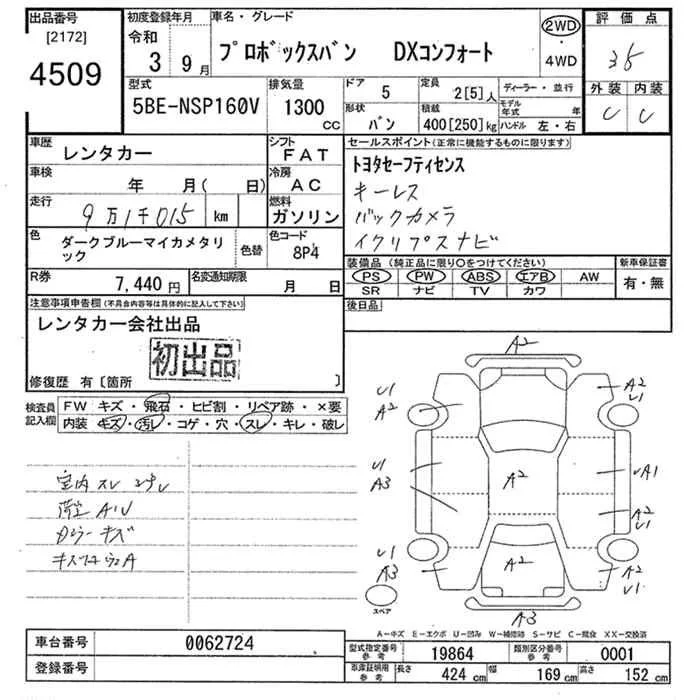 出品番号
[2172]
4509
初度登録年月
令和
3 9月
車名・グレード
プロボックスバン DXコンフォート
2WD
・
4WD
評価点
35
外装 内装
C C
型式
5BE-NSP160V
排気量
1300
CC
ドア 5
形状 バン
定員 2[5]人
積載 400[250]kg
ディーラー・並行
モデル年式 年
ハンドル 左・右
車歴 レンタカー
シフト FAT
車検 年 月( 日)
冷房 AC
走行 9万1千015 km
燃料 ガソリン
色 ダークブルーマイカメタリック
色替
色コード 8P4
R券 7,440円
名変通知期限 月 日
セールスポイント(正常に機能するものに限ります)
トヨタセーフティセンス
キーレス
バックカメラ
イクリプスナビ
装備品(純正品に限り○をつけてください)
新車保証書
PS PW ABS エアB AW
SR ナビ TV カワ
有・無
後日品
注意事項申告欄(不具合内容等は具体的に記入して下さい)
レンタカー会社出品
初出品
修復歴 有〔箇所 〕
検査員記入欄
FW キズ・飛石・ヒビ割・リペア跡・×要
内装 キズ・汚レ・コゲ・穴・スレ・キレ・破レ
室内スレ
キズ
A2
U1
A2
A2
U1
U1
A3
A2
UA1
A2
U1
U1
A3
A2
A2
U1
A3
スペア
A-キズ E-エクボ U-凹み W-補修跡 S-サビ C-腐食 XX-交換済
車台番号 0062724
登録番号
型式指定番号 参考 19864
類別区分番号 参考 0001
車庫証明用 参考 長さ 424cm 幅 169cm 高さ 152cm